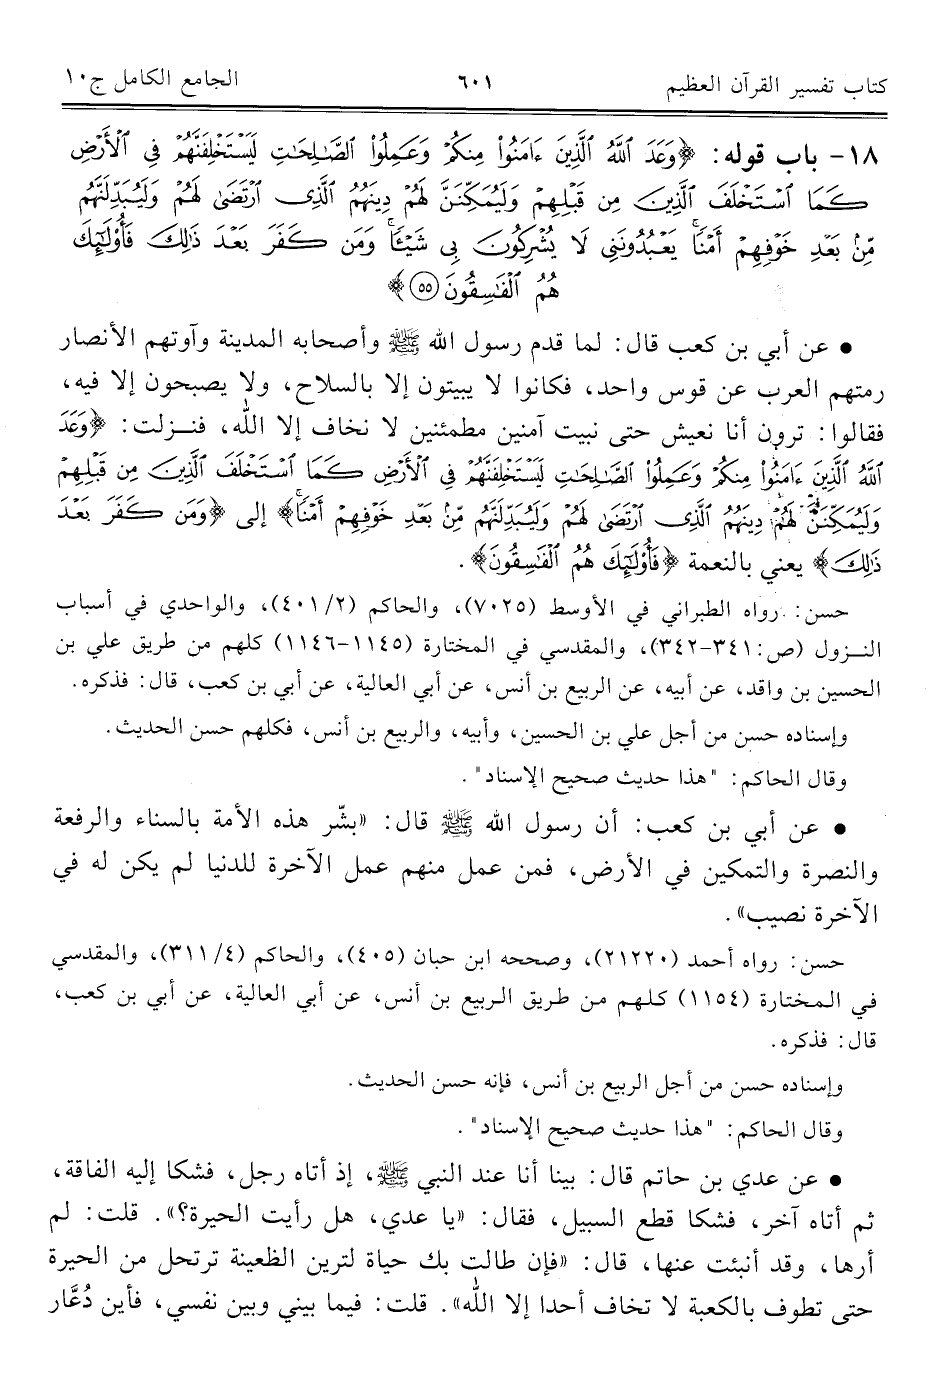 كتاب تفسير القرآن العظيم ٦٠١ الجامع الكامل ج١٠
١٨- باب قوله: ﴿وَعَدَ ٱللَّهُ ٱلَّذِينَ ءَامَنُوا۟ مِنكُمْ وَعَمِلُوا۟ ٱلصَّـٰلِحَـٰتِ لَيَسْتَخْلِفَنَّهُمْ فِى ٱلْأَرْضِ
كَمَا ٱسْتَخْلَفَ ٱلَّذِينَ مِن قَبْلِهِمْ وَلَيُمَكِّنَنَّ لَهُمْ دِينَهُمُ ٱلَّذِى ٱرْتَضَىٰ لَهُمْ وَلَيُبَدِّلَنَّهُم
مِّنۢ بَعْدِ خَوْفِهِمْ أَمْنًا ۚ يَعْبُدُونَنِى لَا يُشْرِكُونَ بِى شَيْـًٔا ۚ وَمَن كَفَرَ بَعْدَ ذَٰلِكَ فَأُو۟لَـٰٓئِكَ
هُمُ ٱلْفَـٰسِقُونَ ٥٥﴾
● عن أبي بن كعب قال: لما قدم رسول الله ﷺ وأصحابه المدينة وآوتهم الأنصار
رمتهم العرب عن قوس واحد، فكانوا لا يبيتون إلا بالسلاح، ولا يصبحون إلا فيه،
فقالوا: ترون أنا نعيش حتى نبيت آمنين مطمئنين لا نخاف إلا الله، فنـزلت: ﴿وَعَدَ
ٱللَّهُ ٱلَّذِينَ ءَامَنُوا۟ مِنكُمْ وَعَمِلُوا۟ ٱلصَّـٰلِحَـٰتِ لَيَسْتَخْلِفَنَّهُمْ فِى ٱلْأَرْضِ كَمَا ٱسْتَخْلَفَ ٱلَّذِينَ مِن قَبْلِهِمْ
وَلَيُمَكِّنَنَّ لَهُمْ دِينَهُمُ ٱلَّذِى ٱرْتَضَىٰ لَهُمْ وَلَيُبَدِّلَنَّهُم مِّنۢ بَعْدِ خَوْفِهِمْ أَمْنًا ۚ﴾ إلى ﴿وَمَن كَفَرَ بَعْدَ
ذَٰلِكَ﴾ يعني بالنعمة ﴿فَأُو۟لَـٰٓئِكَ هُمُ ٱلْفَـٰسِقُونَ﴾.
حسن: رواه الطبراني في الأوسط (٧٠٢٥)، والحاكم (٤٠١/٢)، والواحدي في أسباب
النـزول (ص: ٣٤١-٣٤٢)، والمقدسي في المختارة (١١٤٥-١١٤٦) كلهم من طريق علي بن
الحسين بن واقد، عن أبيه، عن الربيع بن أنس، عن أبي العالية، عن أبي بن كعب، قال: فذكره.
وإسناده حسن من أجل علي بن الحسين، وأبيه، والربيع بن أنس، فكلهم حسن الحديث.
وقال الحاكم: "هذا حديث صحيح الإسناد".
● عن أبي بن كعب: أن رسول الله ﷺ قال: «بشّر هذه الأمة بالسناء والرفعة
والنصرة والتمكين في الأرض، فمن عمل منهم عمل الآخرة للدنيا لم يكن له في
الآخرة نصيب».
حسن: رواه أحمد (٢١٢٢٠)، وصححه ابن حبان (٤٠٥)، والحاكم (٣١١/٤)، والمقدسي
في المختارة (١١٥٤) كلهم من طريق الربيع بن أنس، عن أبي العالية، عن أبي بن كعب،
قال: فذكره.
وإسناده حسن من أجل الربيع بن أنس، فإنه حسن الحديث.
وقال الحاكم: "هذا حديث صحيح الإسناد".
● عن عدي بن حاتم قال: بينا أنا عند النبي ﷺ، إذ أتاه رجل، فشكا إليه الفاقة،
ثم أتاه آخر، فشكا قطع السبيل، فقال: «يا عدي، هل رأيت الحيرة؟». قلت: لم
أرها، وقد أنبئت عنها، قال: «فإن طالت بك حياة لترين الظعينة ترتحل من الحيرة
حتى تطوف بالكعبة لا تخاف أحدا إلا الله». قلت: فيما بيني وبين نفسي، فأين دُعَّار